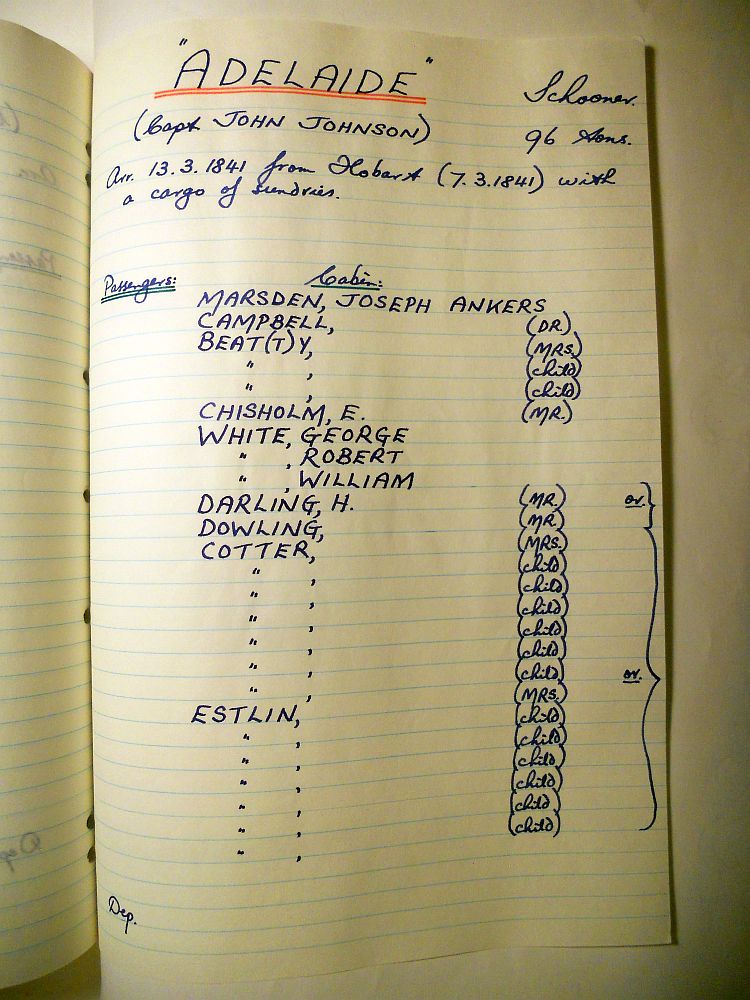 "ADELAIDE"
Schooner.
(Capt JOHN JOHNSON)
96 tons.
Arr. 13.3.1841 from Hobart (7.3.1841) with
a cargo of sundries.
Passengers: Cabin:
MARSDEN, JOSEPH ANKERS
CAMPBELL, (DR.)
BEAT(T)Y, (MRS.)
" , (child)
" , (child)
CHISHOLM, E. (MR.)
WHITE, GEORGE
" , ROBERT
" , WILLIAM
DARLING, H. (MR.) or.
DOWLING, (MR.)
COTTER, (MRS.)
" , (child)
" , (child)
" , (child)
" , (child)
" , (child)
" , (child) or.
ESTLIN, (MRS.)
" , (child)
" , (child)
" , (child)
" , (child)
" , (child)
" , (child)
Dep.